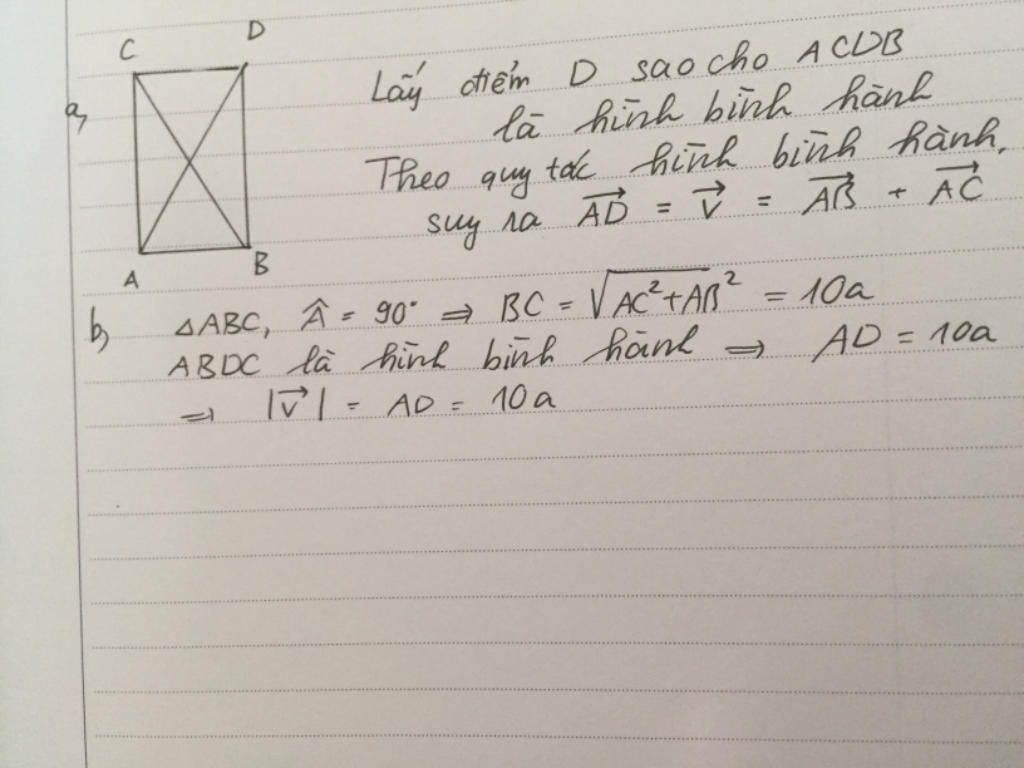 C D
a,
Lấy điểm D sao cho ACDB
là hình bình hành
Theo quy tắc hình bình hành,
suy ra $\overrightarrow{AD} = \overrightarrow{v} = \overrightarrow{AB} + \overrightarrow{AC}$
A B
b, △ABC, Â = 90° ⇒ BC = √(AC² + AB²) = 10a
ABDC là hình bình hành ⇒ AD = 10a
⇒ |$\overrightarrow{v}$| = AD = 10a